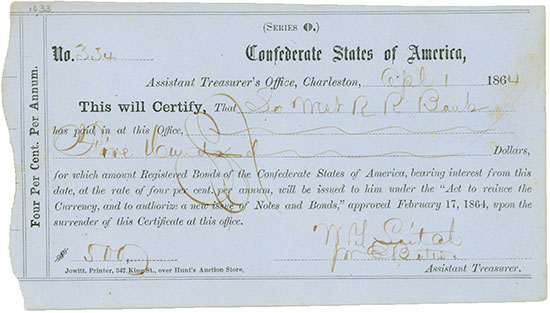 1633
(SERIES O.)
No. 334 Confederate States of America,
Assistant Treasurer's Office, Charleston, Apl 1 1864
This will Certify, That So Wet R R Bank
has paid in at this Office,
Five Hundred Dollars,
for which amount Registered Bonds of the Confederate States of America, bearing interest from this
date, at the rate of four per cent. per annum, will be issued to him under the "Act to reduce the
Currency, and to authorize a new issue of Notes and Bonds," approved February 17, 1864, upon the
surrender of this Certificate at this office.
$500
Jowitt, Printer, 347 King St., over Hunt's Auction Store,
Assistant Treasurer.
Four Per Cent. Per Annum.